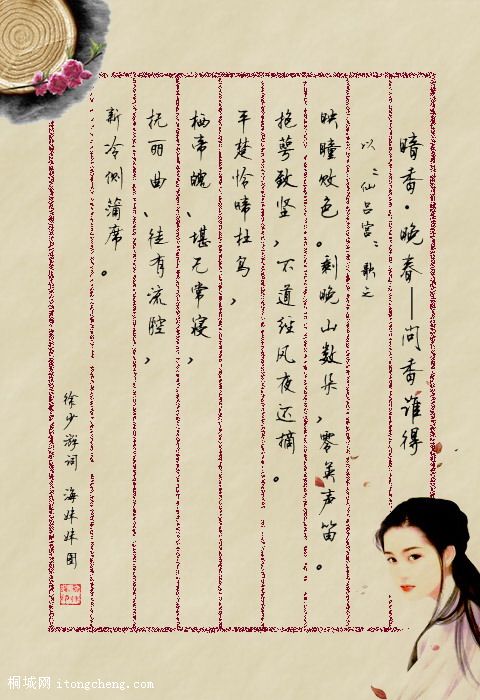 暗香·晚春——问香谁得
以“仙吕宫”歌之
映瞳败色。剩晚山数朵，零英声笛。
抱萼致坚，不道经风夜还摘。
平楚怜啼杜鸟，
栖帝魄、堪无常寝，
抚丽曲、徒有流腔，
新冷侧蒲席。
徐少游词 海妹妹图
桐城网 itongcheng.com